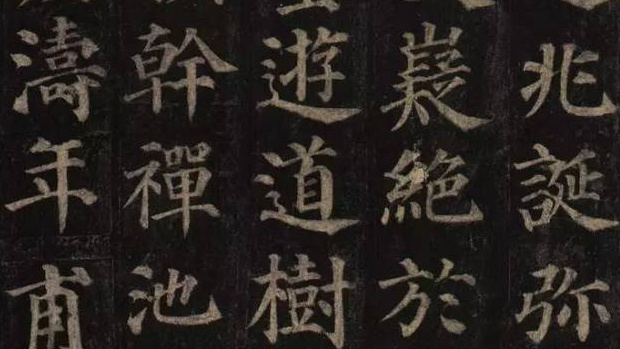 兆誕弥
嶷絕於
遊道樹
幹禪池
濤年甫